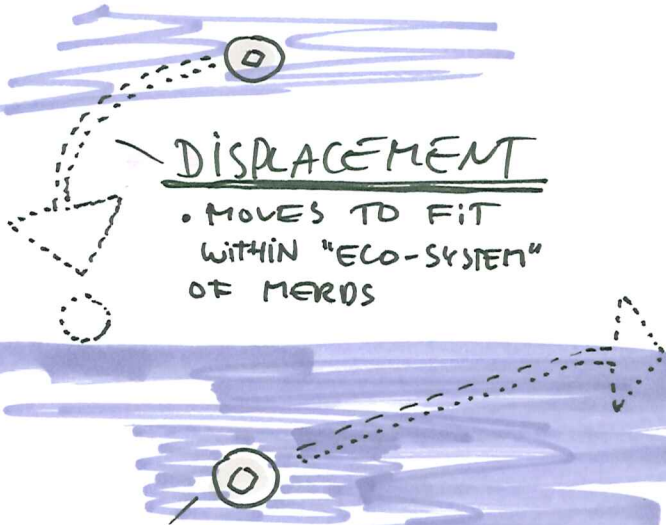 DISPLACEMENT
• MOVES TO FIT
WITHIN "ECO-SYSTEM"
OF MERDS